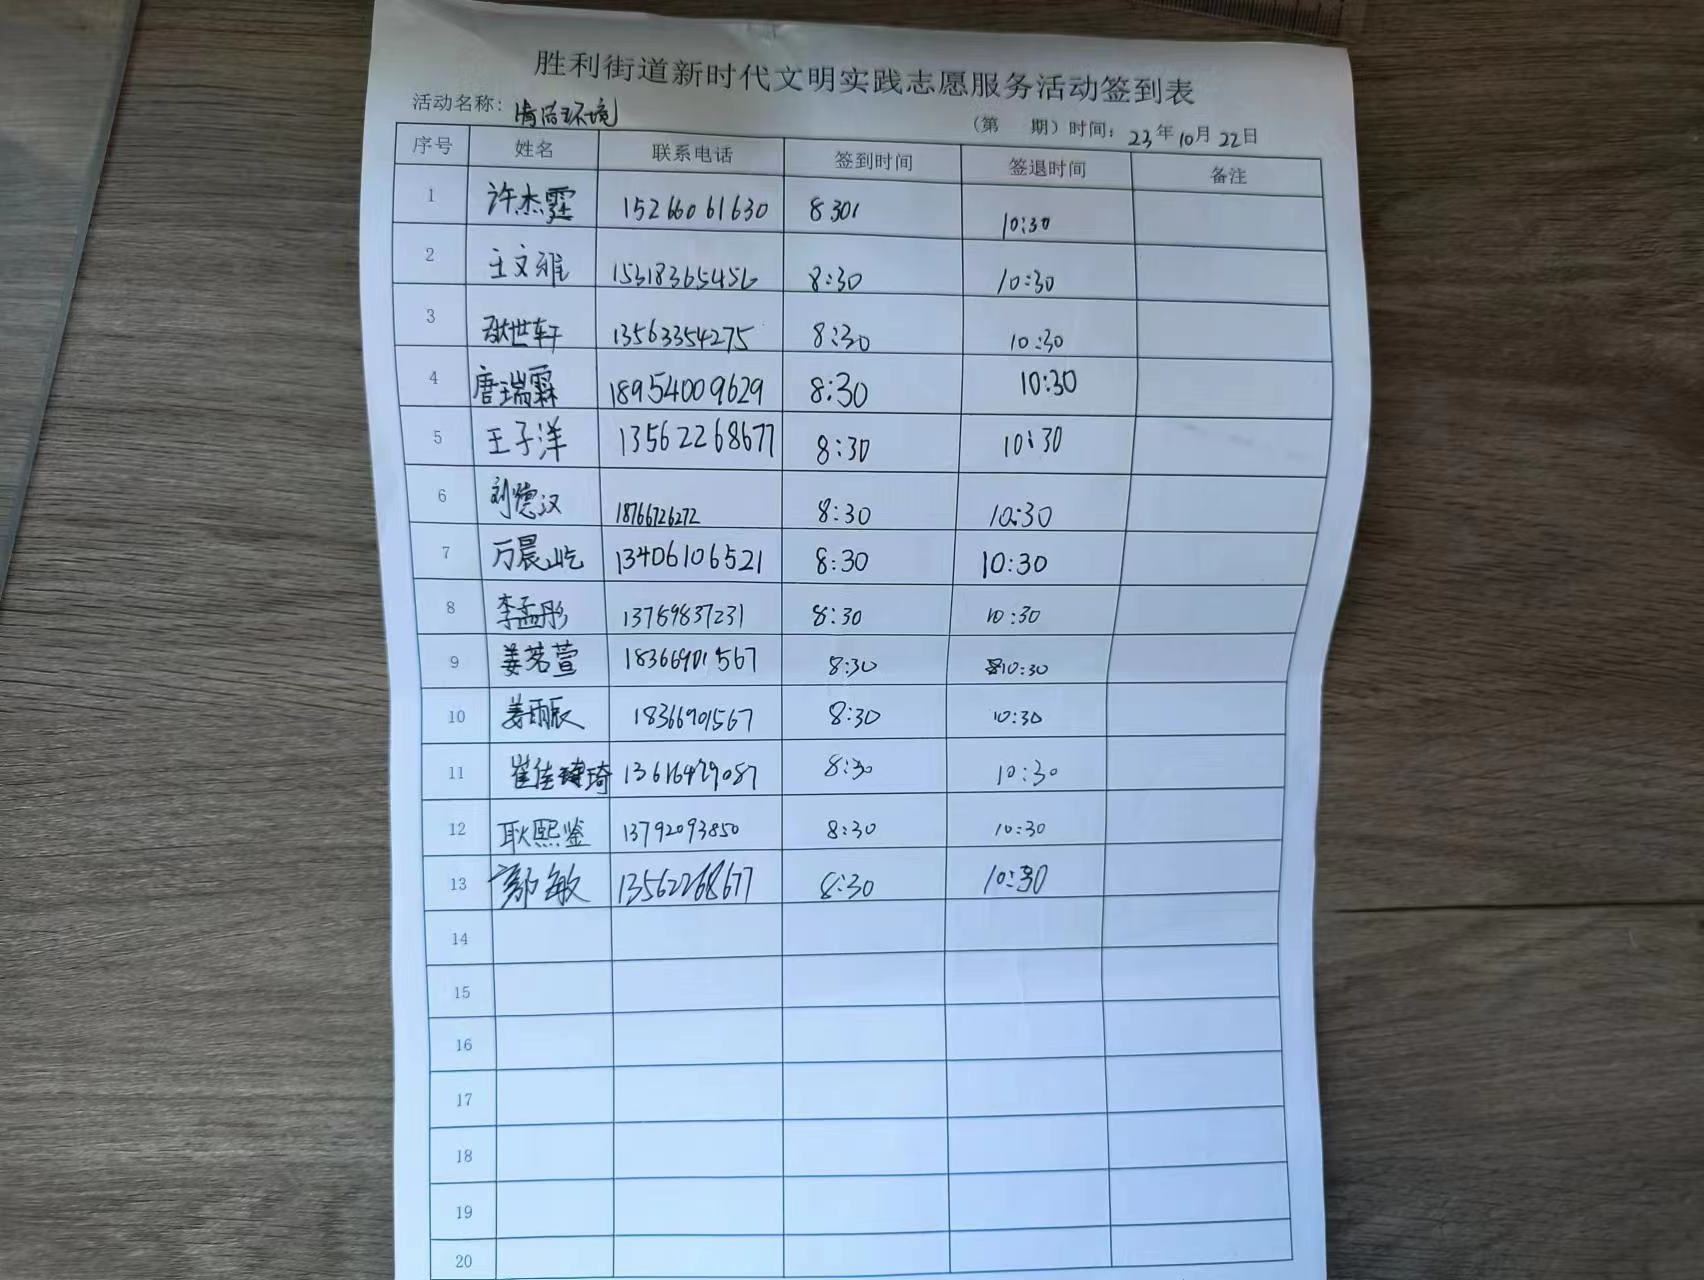 胜利街道新时代文明实践志愿服务活动签到表
活动名称：清洁环境 （第 期）时间：23年10月22日
序号 姓名 联系电话 签到时间 签退时间 备注
1 许杰霆 15266061630 8 301 10:30
2 王文雅 15318365456 8:30 10:30
3 耿世轩 13563354275 8:30 10:30
4 唐瑞霖 18954009629 8:30 10:30
5 王子洋 13562268677 8:30 10:30
6 刘德汉 18766726272 8:30 10:30
7 万晨屹 13406106521 8:30 10:30
8 李孟彤 13769837231 8:30 10:30
9 姜茗萱 18366901567 8:30 10:30
10 姜雨辰 18366901567 8:30 10:30
11 崔佳琦 13616429087 8:30 10:30
12 耿熙鉴 13792093850 8:30 10:30
13 敏 13562268677 8:30 10:30
14
15
16
17
18
19
20